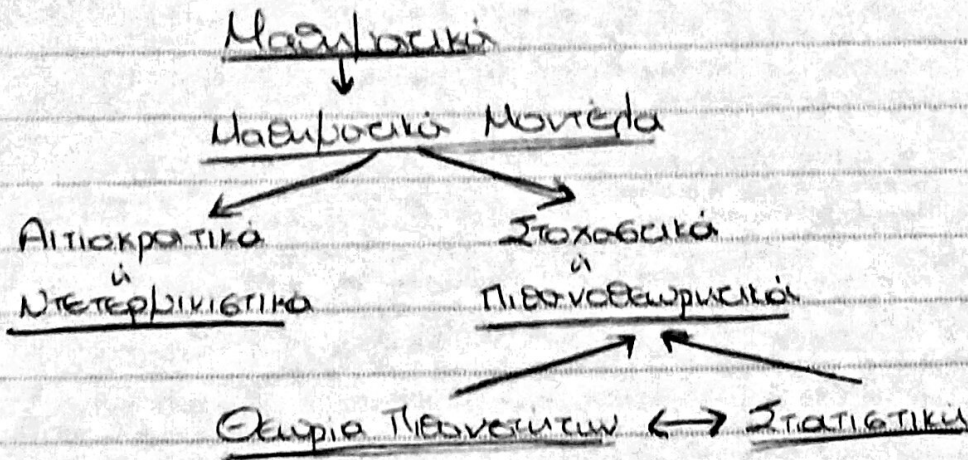 Μαθηματικά
Μαθηματικά Μοντέλα
Αιτιοκρατικά
ή
Ντετερμινιστικά
Στοχαστικά
ή
Πιθανοθεωρητικά
Θεωρία Πιθανοτήτων ↔ Στατιστική